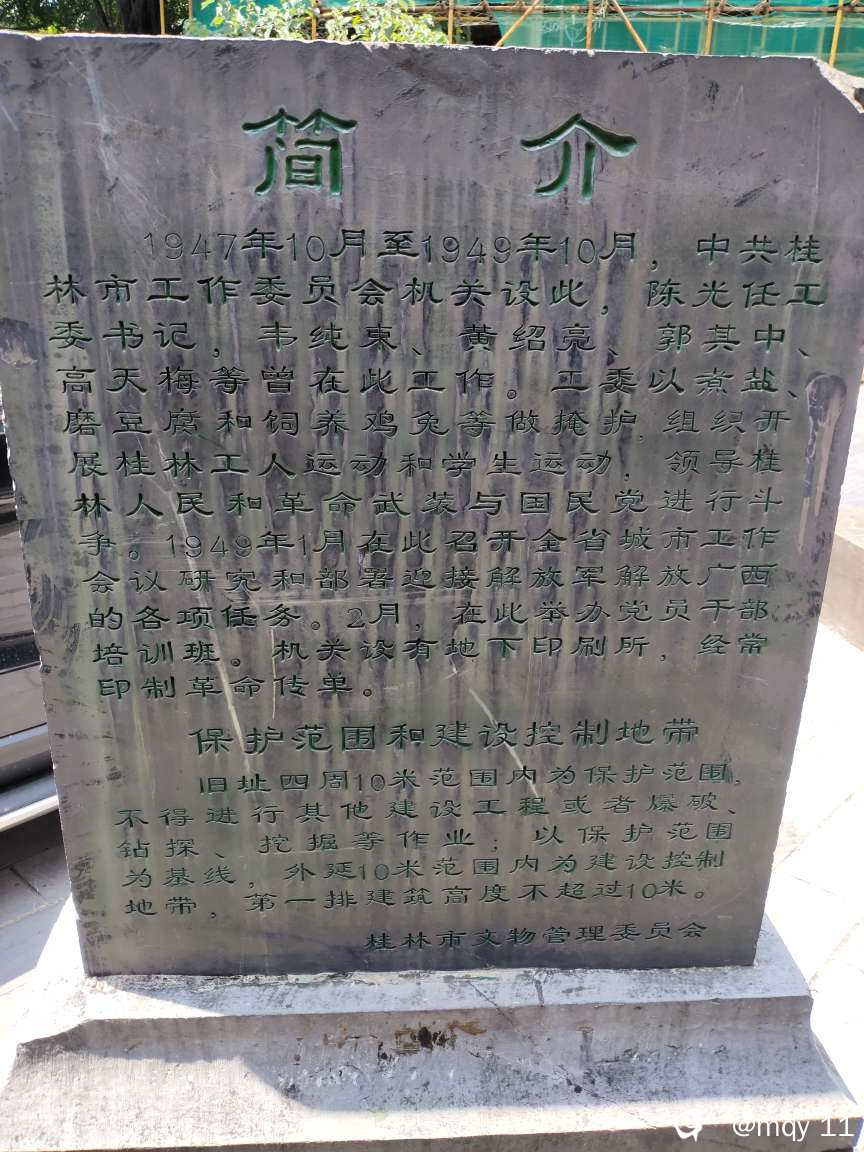 简介
1947年10月至1949年10月，中共桂
林市工作委员会机关设此，陈光任工
委书记，韦纯束、黄绍亮、郭其中、
高天梅等曾在此工作。工委以煮盐、
磨豆腐和饲养鸡兔等做掩护，组织开
展桂林工人运动和学生运动，领导桂
林人民和革命武装与国民党进行斗
争。1949年1月在此召开全省城市工作
会议研究和部署迎接解放军解放广西
的各项任务。2月，在此举办党员干部
培训班。机关设有地下印刷所，经常
印制革命传单。
保护范围和建设控制地带
旧址四周10米范围内为保护范围，
不得进行其他建设工程或者爆破、
钻探、挖掘等作业；以保护范围
为基线，外延10米范围内为建设控制
地带，第一排建筑高度不超过10米。
桂林市文物管理委员会
@mqy 11